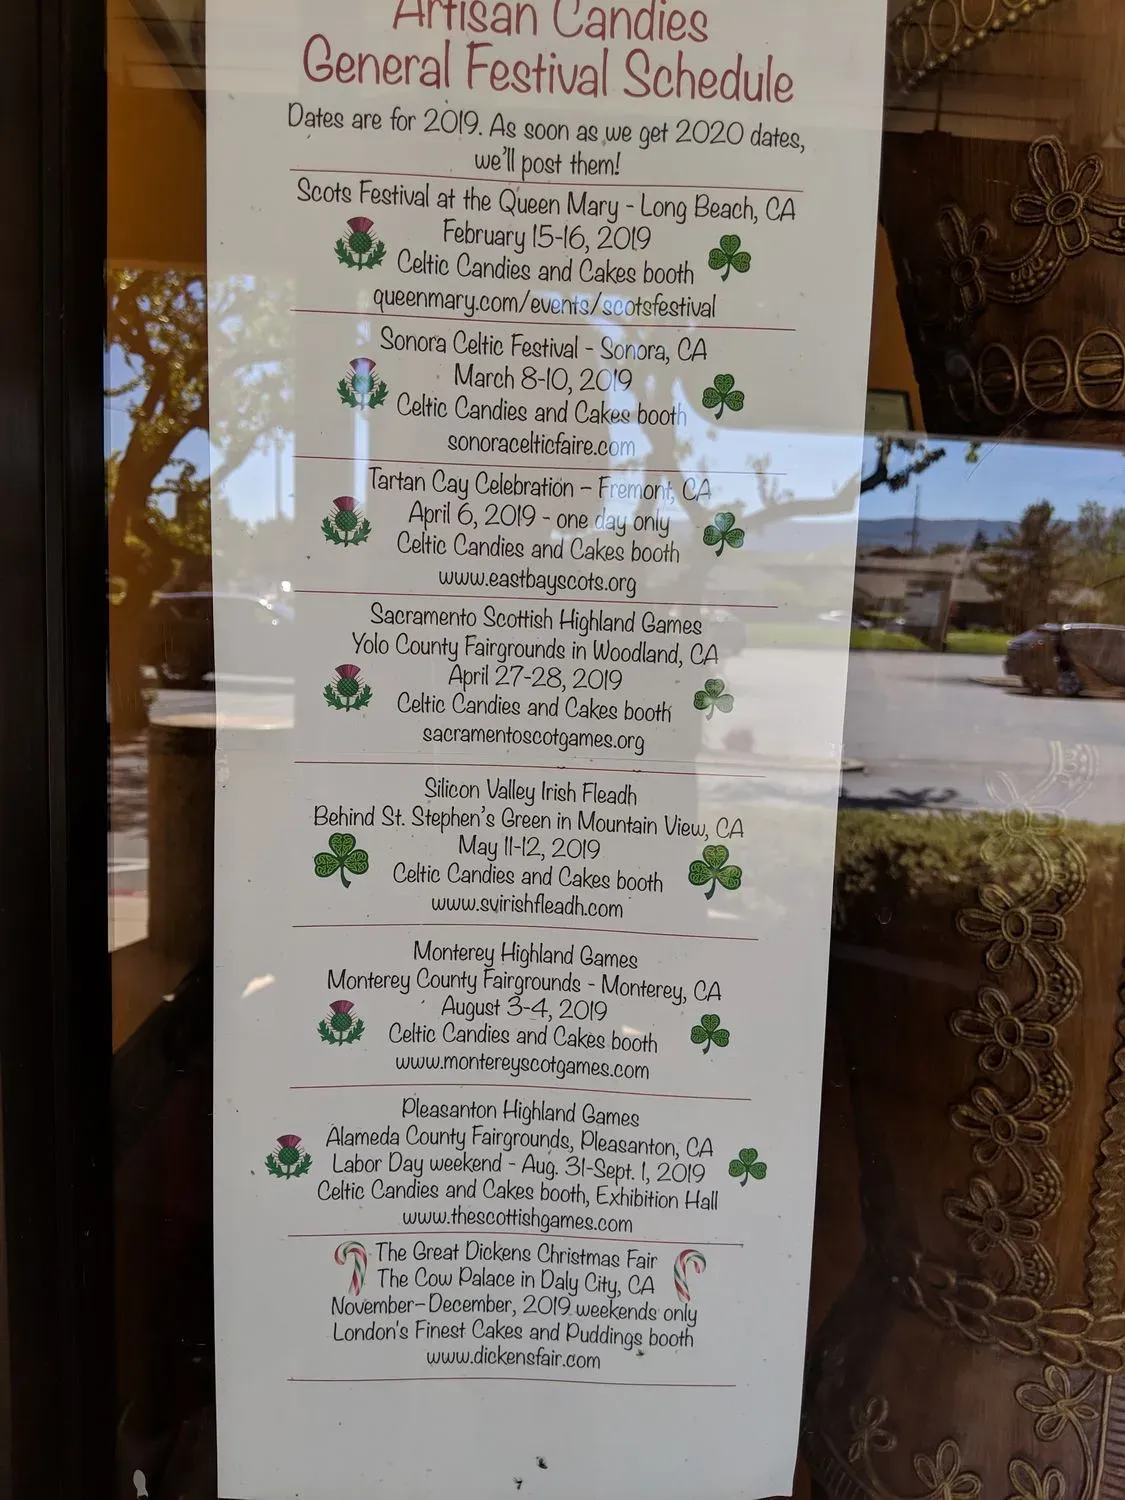 Artisan Candies
General Festival Schedule
Dates are for 2019. As soon as we get 2020 dates,
we'll post them!
Scots Festival at the Queen Mary - Long Beach, CA
February 15-16, 2019
Celtic Candies and Cakes booth
queenmary.com/events/scotsfestival
Sonora Celtic Festival - Sonora, CA
March 8-10, 2019
Celtic Candies and Cakes booth
sonoracelticfaire.com
Tartan Cay Celebration - Fremont, CA
April 6, 2019 - one day only
Celtic Candies and Cakes booth
www.eastbayscots.org
Sacramento Scottish Highland Games
Yolo County Fairgrounds in Woodland, CA
April 27-28, 2019
Celtic Candies and Cakes booth
sacramentoscotgames.org
Silicon Valley Irish Fleadh
Behind St. Stephen's Green in Mountain View, CA
May 11-12, 2019
Celtic Candies and Cakes booth
www.svirishfleadh.com
Monterey Highland Games
Monterey County Fairgrounds - Monterey, CA
August 3-4, 2019
Celtic Candies and Cakes booth
www.montereyscotgames.com
Pleasanton Highland Games
Alameda County Fairgrounds, Pleasanton, CA
Labor Day weekend - Aug. 31-Sept. 1, 2019
Celtic Candies and Cakes booth, Exhibition Hall
www.thescottishgames.com
The Great Dickens Christmas Fair
The Cow Palace in Daly City, CA
November-December, 2019 weekends only
London's Finest Cakes and Puddings booth
www.dickensfair.com